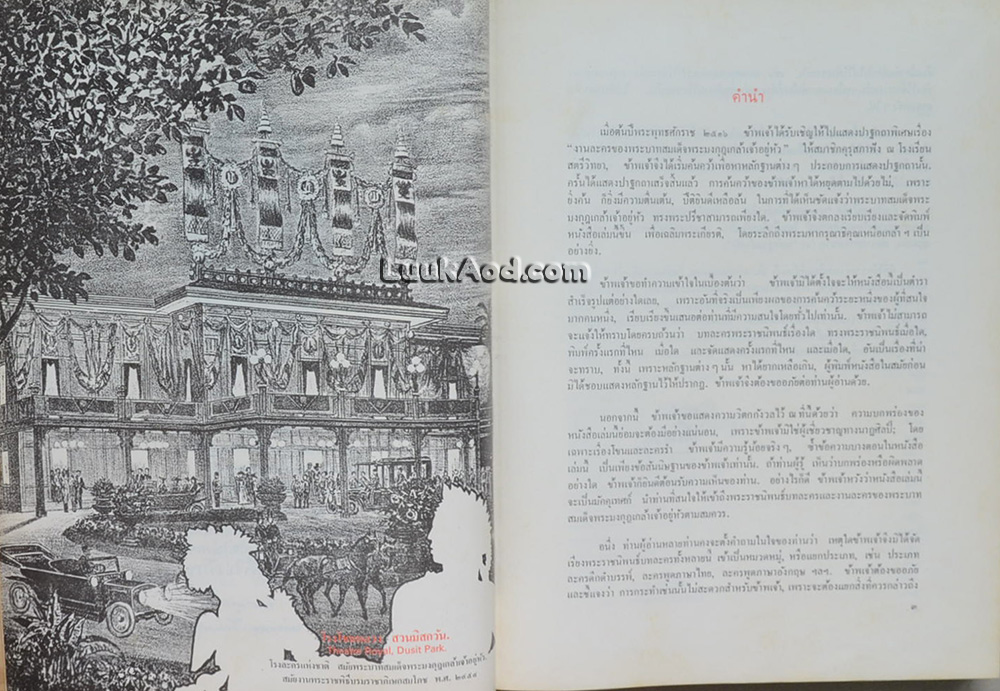 LuukAod.com
โรงโขนหลวง สวนมิสกวัน.
Theatre Royal, Dusit Park.
โรงละครแห่งชาติ สมัยพระบาทสมเด็จพระมงกุฎเกล้าเจ้าอยู่หัว
สมัยงานพระราชพิธีบรมราชาภิเษกสมโภช พ.ศ. ๒๔๕๔
คำนำ
เมื่อต้นปีพระพุทธศักราช ๒๕๑๖ ข้าพเจ้าได้รับเชิญให้ไปแสดงปาฐกถาพิเศษเรื่อง
“งานละครของพระบาทสมเด็จพระมงกุฎเกล้าเจ้าอยู่หัว” ให้สมาชิกคุรุสภาฟัง ณ โรงเรียน
สตรีวิทยา, ข้าพเจ้าจึงได้เริ่มค้นคว้าเพื่อหาหลักฐานต่าง ๆ ประกอบการแสดงปาฐกถานั้น.
ครั้นได้แสดงปาฐกถาเสร็จสิ้นแล้ว การค้นคว้าของข้าพเจ้าหาได้หยุดตามไปด้วยไม่, เพราะ
ยิ่งค้น ก็ยิ่งมีความตื่นเต้น, ปีติยินดีเหลือล้น ในการที่ได้เห็นชัดแจ้งว่าพระบาทสมเด็จพระ
มงกุฎเกล้าเจ้าอยู่หัว ทรงพระปรีชาสามารถเพียงใด. ข้าพเจ้าจึงตกลงเรียบเรียงและจัดพิมพ์
หนังสือเล่มนี้ขึ้น เพื่อเฉลิมพระเกียรติ, โดยระลึกถึงพระมหากรุณาธิคุณเหนือเกล้า ฯ เป็น
อย่างยิ่ง.
ข้าพเจ้าขอทำความเข้าใจในเบื้องต้นว่า ข้าพเจ้ามิได้ตั้งใจจะให้หนังสือนี้เป็นตำรา
สำเร็จรูปแต่อย่างใดเลย, เพราะอันที่จริงเป็นเพียงผลของการค้นคว้าระยะหนึ่งของผู้ที่สนใจ
มากคนหนึ่ง, เรียบเรียงขึ้นเสนอต่อท่านที่มีความสนใจโดยทั่วไปเท่านั้น. ข้าพเจ้าไม่สามารถ
จะแจ้งให้ทราบโดยครบถ้วนว่า บทละครพระราชนิพนธ์เรื่องใด ทรงพระราชนิพนธ์เมื่อใด,
พิมพ์ครั้งแรกที่ไหน เมื่อใด และจัดแสดงครั้งแรกที่ไหน และเมื่อใด, อันเป็นเรื่องที่น่า
จะทราบ. ทั้งนี้ เพราะหลักฐานต่าง ๆ นั้น หาได้ยากเหลือเกิน, ผู้พิมพ์หนังสือในสมัยก่อน
มิได้ชอบแสดงหลักฐานไว้ให้ปรากฏ. ข้าพเจ้าจึงต้องขออภัยต่อท่านผู้อ่านด้วย.
นอกจากนี้ ข้าพเจ้าขอแสดงความวิตกกังวลไว้ ณ ที่นี้ด้วยว่า ความบกพร่องของ
หนังสือเล่มนี้ย่อมจะต้องมีอย่างแน่นอน, เพราะข้าพเจ้ามิใช่ผู้เชี่ยวชาญทางนาฏศิลป์; โดย
เฉพาะเรื่องโขนและละครรำ ข้าพเจ้ามีความรู้น้อยจริง ๆ, ซ้ำข้อความบางตอนในหนังสือ
เล่มนี้ เป็นเพียงข้อสันนิษฐานของข้าพเจ้าเท่านั้น. ถ้าท่านผู้รู้ เห็นว่าบกพร่องหรือผิดพลาด
อย่างใด ข้าพเจ้าก็ยินดีต้อนรับความเห็นของท่าน. อย่างไรก็ดี ข้าพเจ้าหวังว่าหนังสือเล่มนี้
จะเป็นมัคคุเทศก์ นำท่านที่สนใจให้เข้าถึงพระราชนิพนธ์บทละครและงานละครของพระบาท
สมเด็จพระมงกุฎเกล้าเจ้าอยู่หัวตามสมควร.
อนึ่ง ท่านผู้อ่านหลายท่านคงจะตั้งคำถามในใจของท่านว่า เหตุใดข้าพเจ้าจึงมิได้จัด
เรื่องพระราชนิพนธ์บทละครทั้งหลายนี้ เข้าเป็นหมวดหมู่, หรือแยกประเภท, เช่น ประเภท
ละครดึกดำบรรพ์, ละครพูดภาษาไทย, ละครพูดภาษาอังกฤษ ฯลฯ. ข้าพเจ้าต้องขออภัย
และชี้แจงว่า การกระทำเช่นนั้นไม่สะดวกสำหรับข้าพเจ้า, เพราะจะต้องแยกสิ่งที่ควรกล่าวถึง
๓